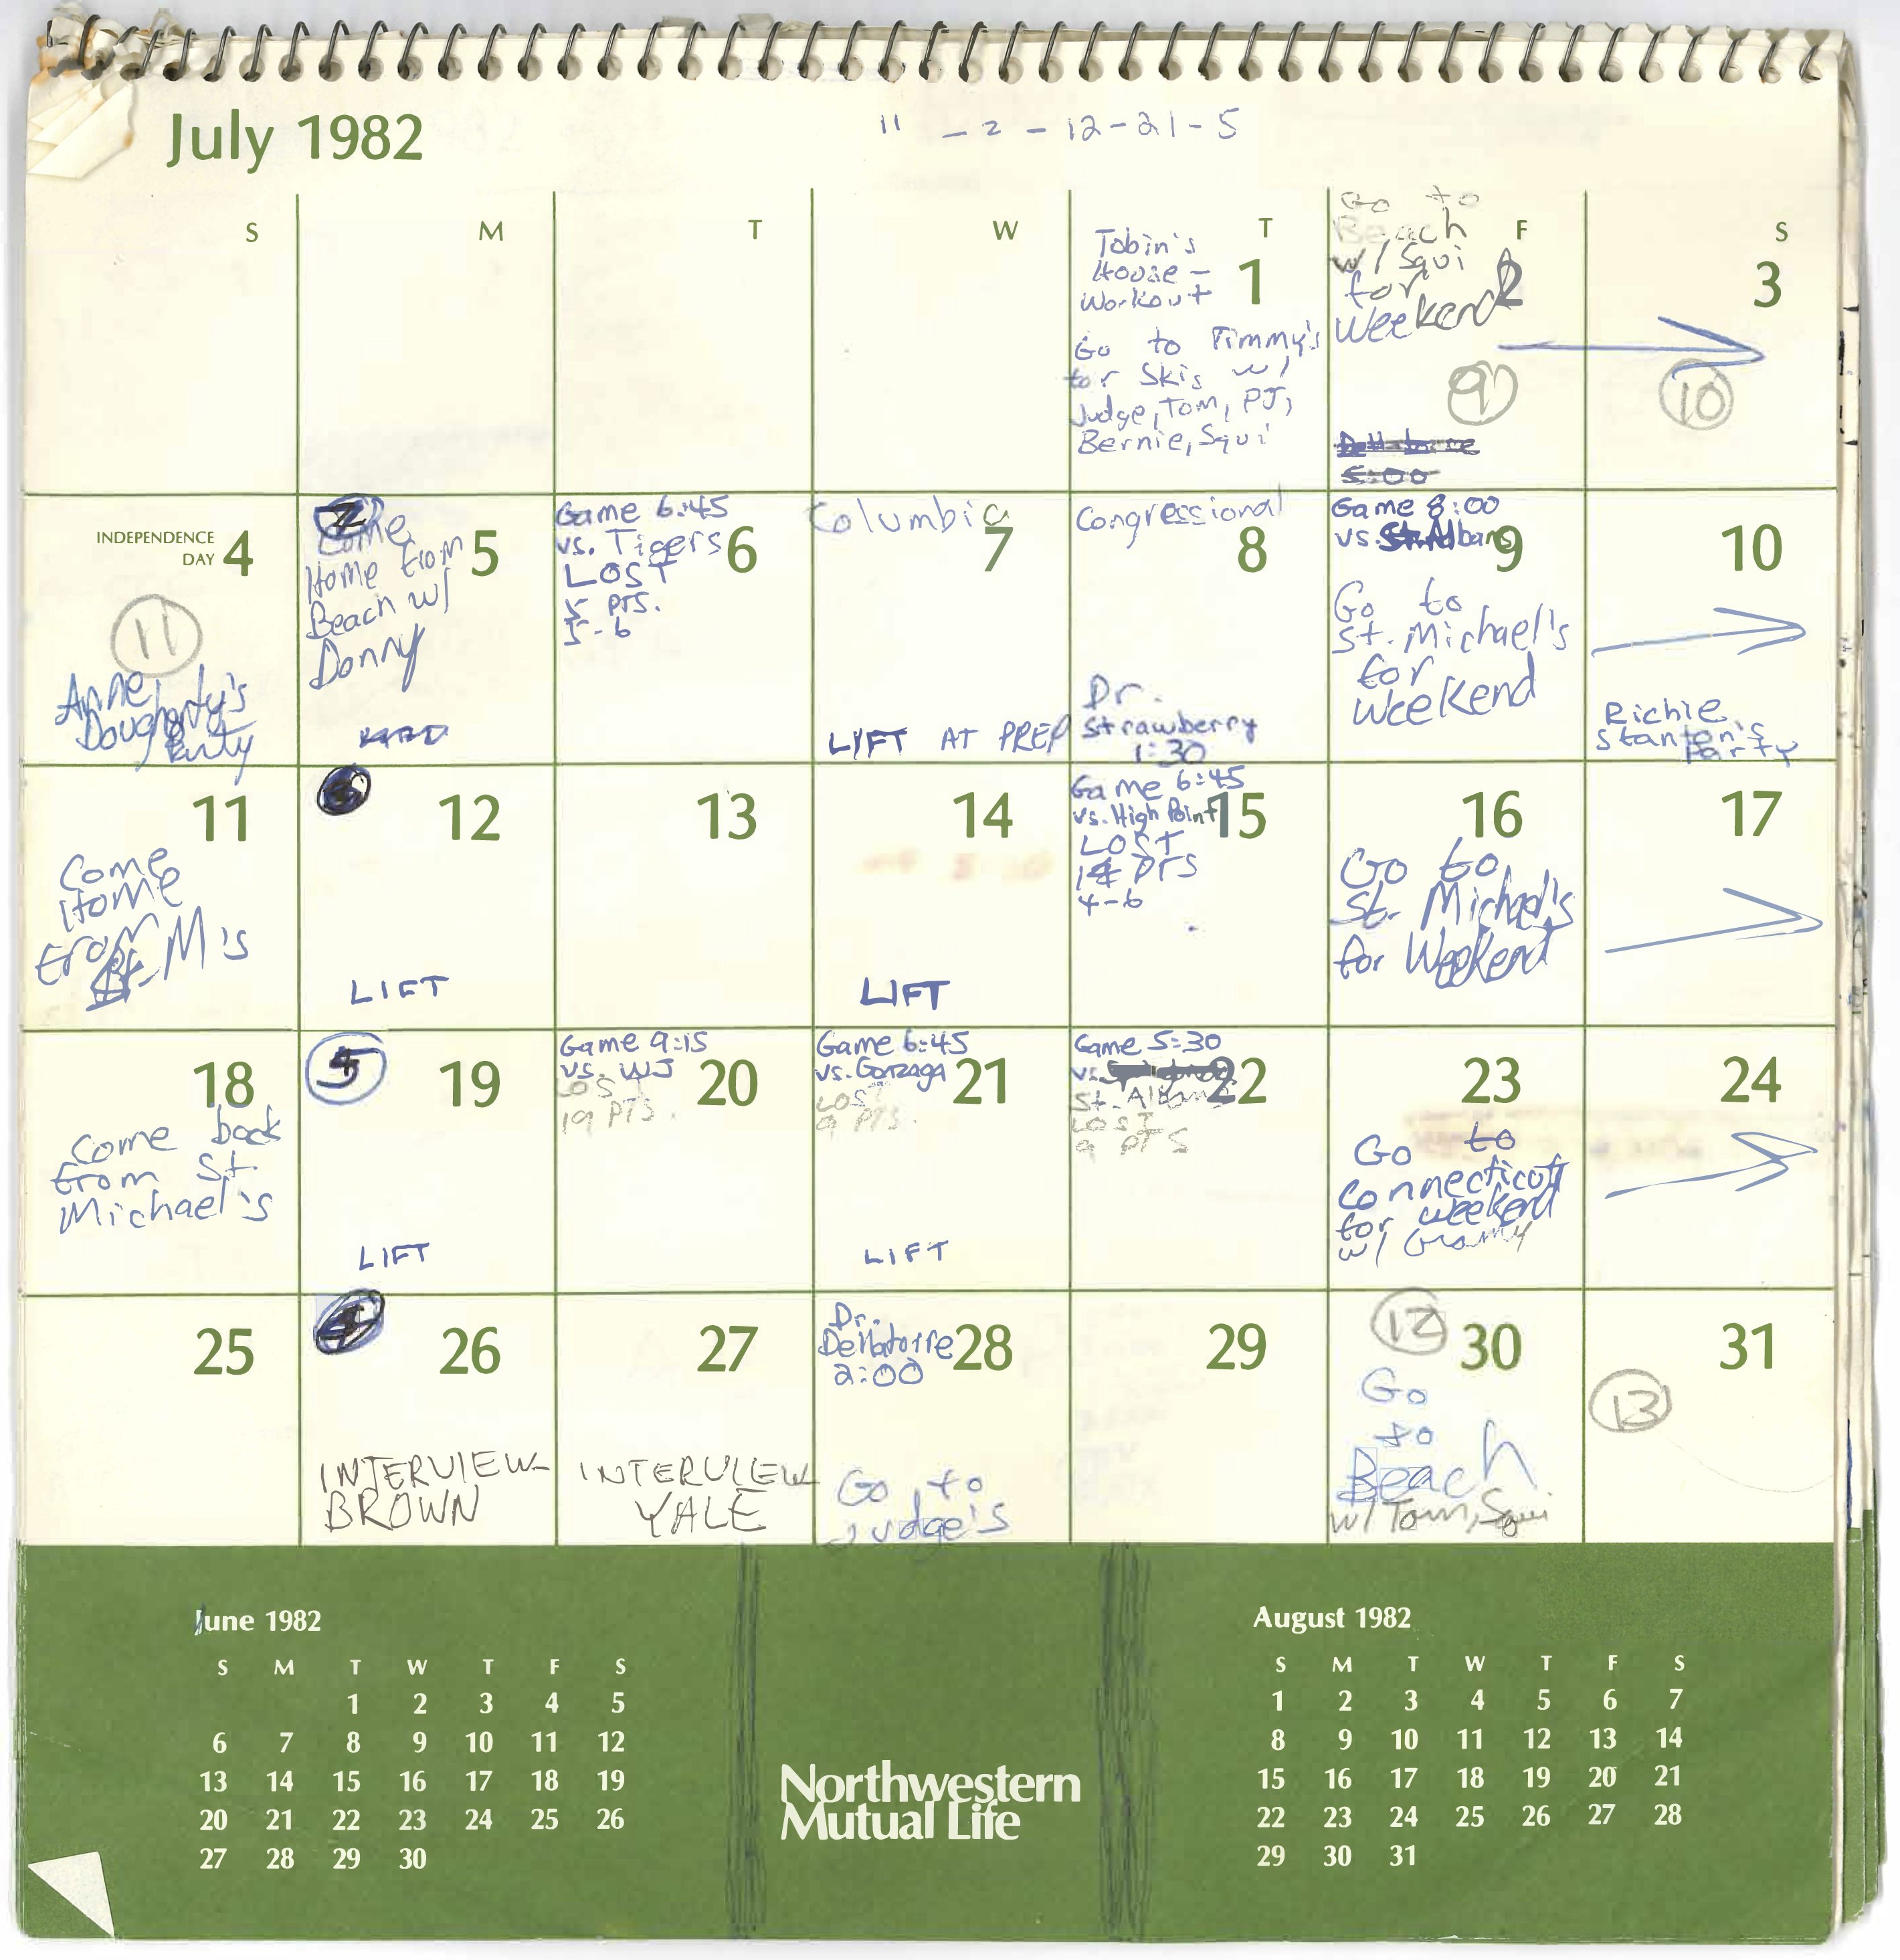 July 1982
11 - 2 - 12 - 21 - 5
S M T W T F S
Tobin's
House -
Workout
1
Go to Timmy's
for Skis w/
Judge, Tom, PJ,
Bernie, Squi
Go to
Beach
w/ Squi
for
Weekend
2
9
5:00
3
10
INDEPENDENCE
DAY 4
11
Anne
Dougherty's
Party
2
Come
Home from
Beach w/
Donny
5
Game 6:45
vs. Tigers
LOST
5 PTS.
5-6
6
Columbia
7
LIFT AT PREP
Congressional
8
Dr.
Strawberry
1:30
Game 8:00
vs. St. Albans
9
Go to
St. Michael's
for
Weekend
10
Richie
Stanton's
Party
11
Come
Home
from
St. M's
12
LIFT
13
14
LIFT
Game 6:45
vs. High Point
15
LOST
PTS
4-6
16
Go to
St. Michael's
for Weekend
17
18
Come back
from St.
Michael's
19
LIFT
Game 9:15
vs. WJ
20
LOST
19 PTS.
Game 6:45
vs. Gonzaga
21
LOST
9 PTS.
LIFT
Game 5:30
vs.
22
St. Albans
LOST
9 PTS
23
Go to
Connecticut
for weekend
w/ Gramy
24
25
26
INTERVIEW
BROWN
27
INTERVIEW
YALE
Dr.
Dellatorre
2:00
28
Go to
Judge's
29
12
30
Go
to
Beach
w/ Tom, Squi
31
13
June 1982
S M T W T F S
1 2 3 4 5
6 7 8 9 10 11 12
13 14 15 16 17 18 19
20 21 22 23 24 25 26
27 28 29 30
Northwestern
Mutual Life
August 1982
S M T W T F S
1 2 3 4 5 6 7
8 9 10 11 12 13 14
15 16 17 18 19 20 21
22 23 24 25 26 27 28
29 30 31